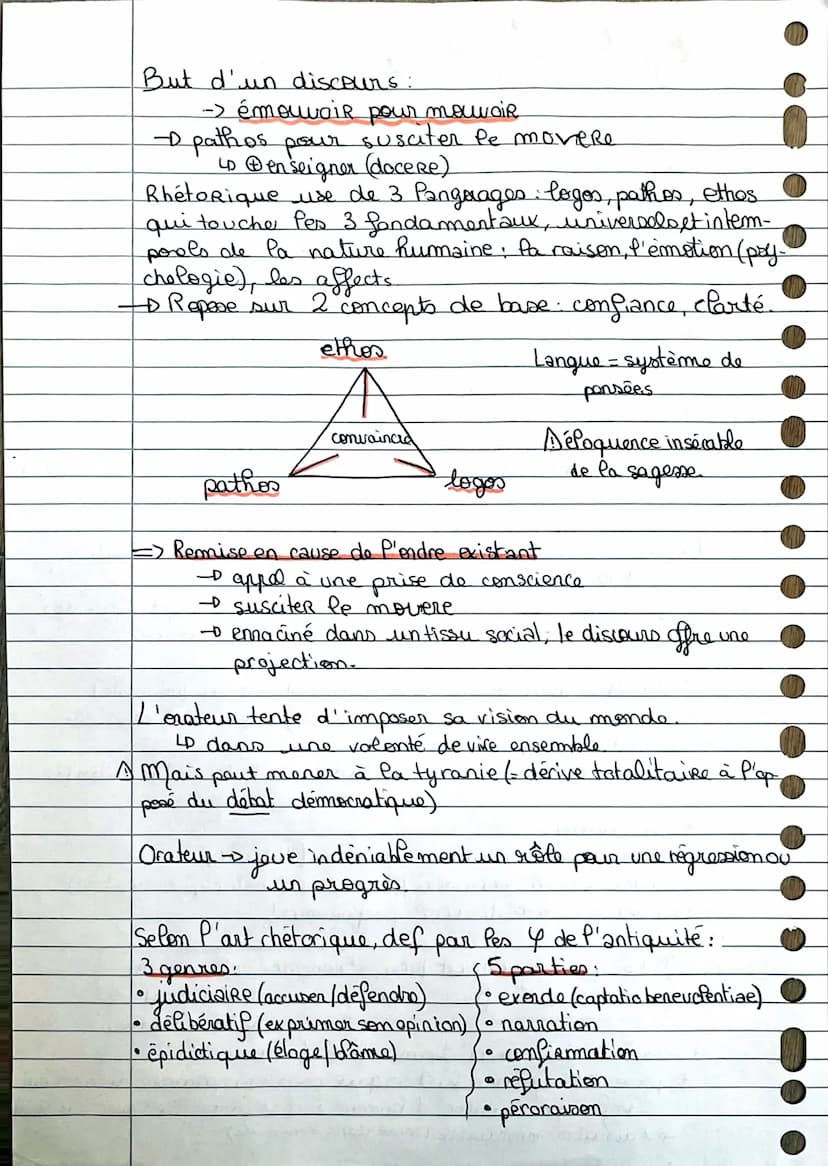 But d'un discours :
-> émouvoir pour mouvoir
→ pathos pour susciter le movere
↳ ⊕ enseigner (docere)
Rhétorique use de 3 langages : logos, pathos, ethos
qui touche les 3 fondamentaux, universels et intem-
porels de la nature humaine : la raison, l'émotion (psy-
chologie), les affects
→ Repose sur 2 concepts de base : confiance, clarté.
ethos
Langue = système de
pensées
convaincre
⚠ éloquence insécable
de la sagesse.
pathos
logos
=> Remise en cause de l'ordre existant
→ appel à une prise de conscience
→ susciter le movere
→ enraciné dans un tissu social, le discours offre une
projection.
L'orateur tente d'imposer sa vision du monde.
↳ dans une volonté de vivre ensemble.
⚠ Mais peut mener à la tyranie (= dérive totalitaire à l'op-
posé du débat démocratique)
Orateur → joue indéniablement un rôle pour une régression ou
un progrès.
Selon l'art rhétorique, def par les φ de l'antiquité :
3 genres :
• judiciaire (accuser/défendre)
• délibératif (exprimer son opinion)
• épidictique (éloge/blâme)
5 parties :
• exorde (captatio benevolentiae)
• narration
• confirmation
• réfutation
• péroraison